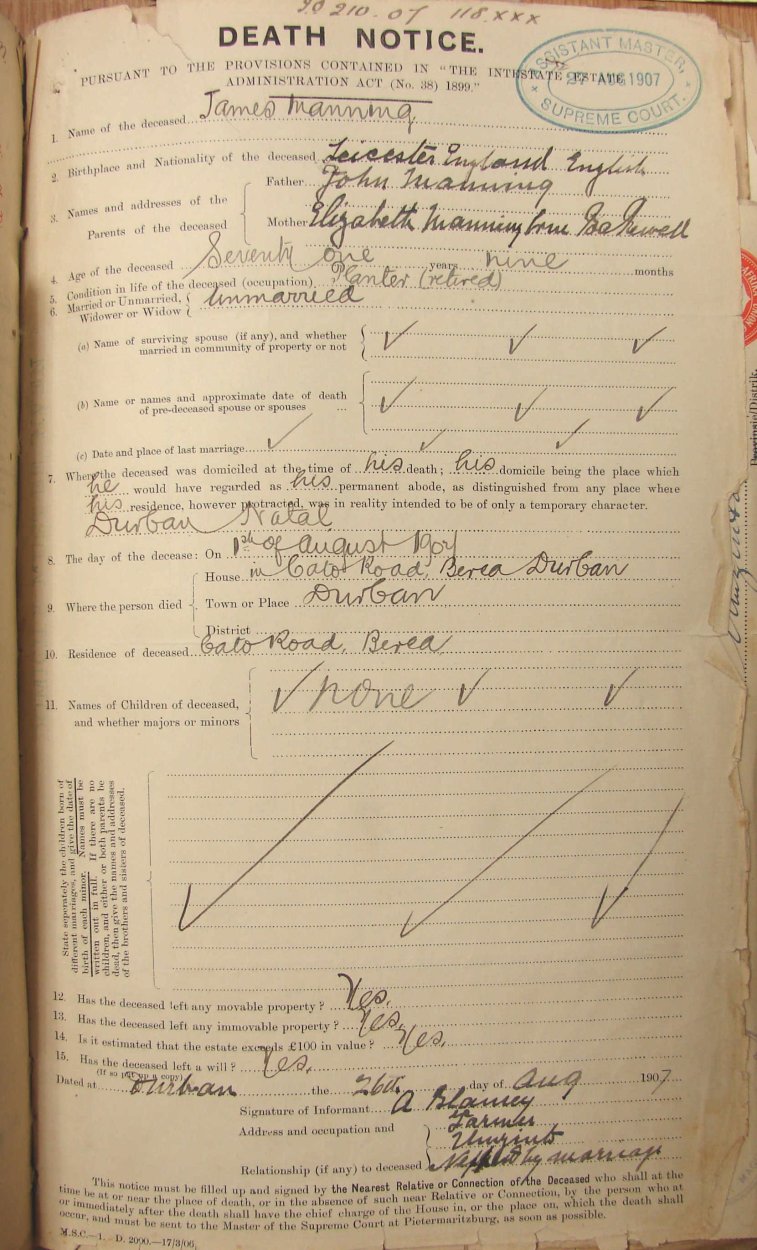 20 210.07 118.XXX
DEATH NOTICE.
PURSUANT TO THE PROVISIONS CONTAINED IN "THE INTESTATE ESTATE
ADMINISTRATION ACT (No. 38) 1899."
ASSISTANT MASTER,
27 AUG 1907
SUPREME COURT.
1. Name of the deceased James Manning
2. Birthplace and Nationality of the deceased Leicester England English
3. Names and addresses of the Parents of the deceased
Father John Manning
Mother Elizabeth Manning born Bakewell
4. Age of the deceased Seventy one years nine months
5. Condition in life of the deceased (occupation) Planter (retired)
6. Married or Unmarried, Widower or Widow unmarried
(a) Name of surviving spouse (if any), and whether
married in community of property or not
(b) Name or names and approximate date of death
of pre-deceased spouse or spouses ...
(c) Date and place of last marriage
7. Where the deceased was domiciled at the time of his death; his domicile being the place which
he would have regarded as his permanent abode, as distinguished from any place where
his residence, however protracted, was in reality intended to be of only a temporary character.
Durban Natal
8. The day of the decease: On 1st of August 1907
9. Where the person died
House in Cato Road, Berea Durban
Town or Place Durban
District
10. Residence of deceased Cato Road, Berea
11. Names of Children of deceased,
and whether majors or minors
none
State seperately the children born of
different marriages, and give the date of
birth of each minor. Names must be
written out in full. If there are no
children, and either or both parents be
dead, then give the names and addresses
of the brothers and sisters of deceased.
12. Has the deceased left any movable property? Yes.
13. Has the deceased left any immovable property? Yes.
14. Is it estimated that the estate exceeds £100 in value? Yes.
15. Has the deceased left a will? Yes.
(If so put up a copy)
Dated at Durban the 26th day of Aug 1907
Signature of Informant A Blamey
Address and occupation and Farmer
Umzinto
Relationship (if any) to deceased Nephew by marriage
This notice must be filled up and signed by the Nearest Relative or Connection of the Deceased who shall at the
time be at or near the place of death, or in the absence of such near Relative or Connection, by the person who at
or immediately after the death shall have the chief charge of the House in, or the place on, which the death shall
occur, and must be sent to the Master of the Supreme Court at Pietermaritzburg, as soon as possible.
M.S.C.—1. D. 2090.—17/3/06.
Provinsie/Distrik.